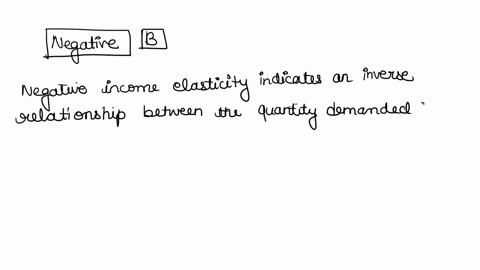 Negative B
Negative income elasticity indicates an inverse
relationship between the quantity demanded